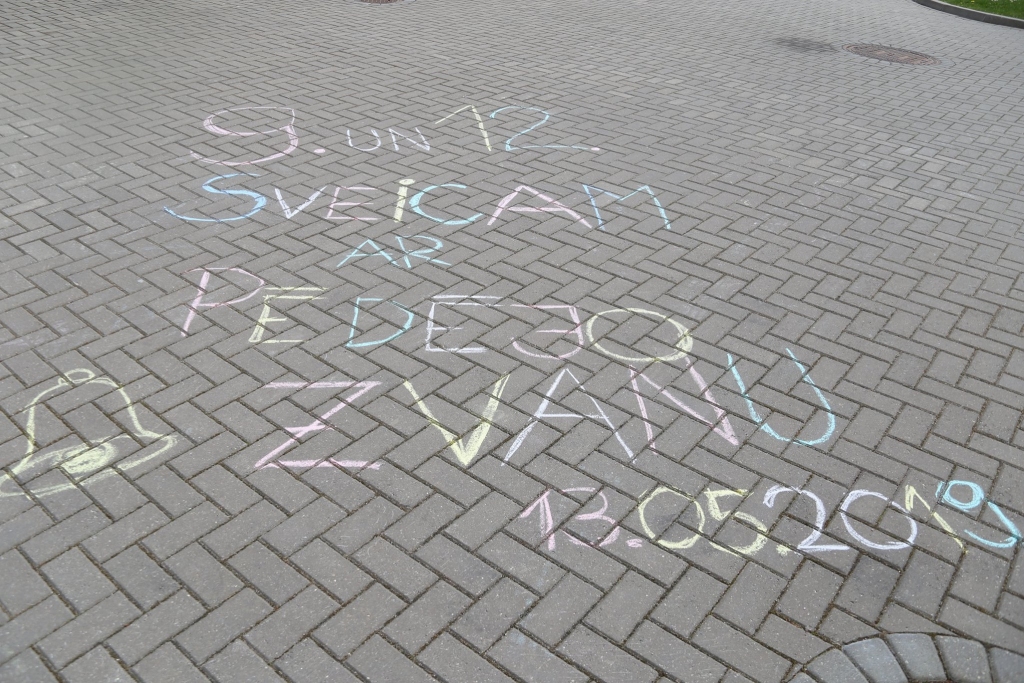 9. UN 12.
SVEICAM
AR
PEDEJO
ZVANU
13.05.2019